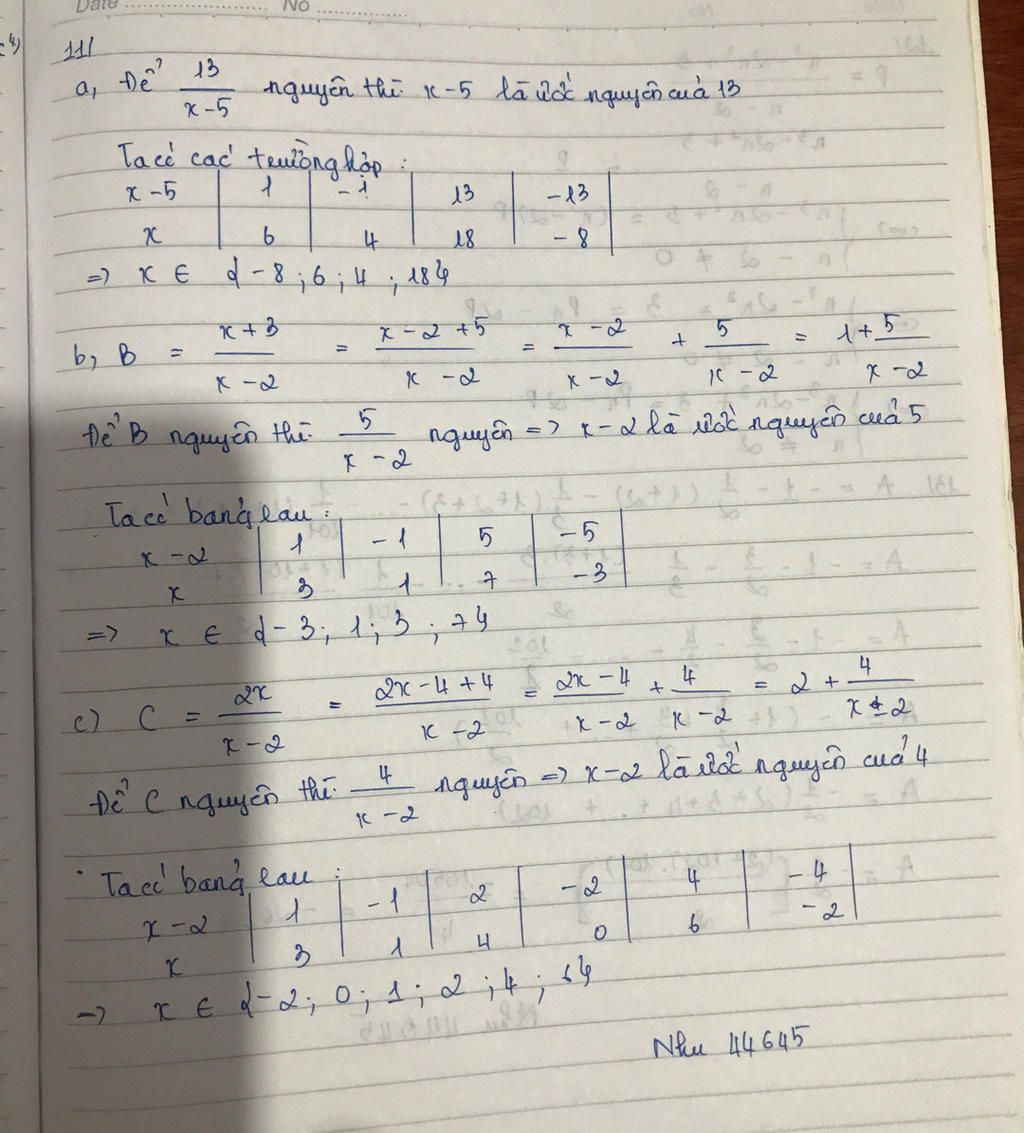 Date ........................ No ..................
11/
a, Để 13/(x-5) nguyên thì x-5 là ước nguyên của 13
Ta có các trường hợp :
x-5 | 1 | -1 | 13 | -13 |
x | 6 | 4 | 18 | -8 |
=> x ∈ {-8 ; 6 ; 4 ; 18}
b, B = (x+3)/(x-2) = (x-2+5)/(x-2) = (x-2)/(x-2) + 5/(x-2) = 1 + 5/(x-2)
Để B nguyên thì 5/(x-2) nguyên => x-2 là ước nguyên của 5
Ta có bảng sau :
x-2 | 1 | -1 | 5 | -5 |
x | 3 | 1 | 7 | -3 |
=> x ∈ {-3 ; 1 ; 3 ; 7}
c) C = 2x/(x-2) = (2x-4+4)/(x-2) = (2x-4)/(x-2) + 4/(x-2) = 2 + 4/(x-2)
Để C nguyên thì 4/(x-2) nguyên => x-2 là ước nguyên của 4
Ta có bảng sau :
x-2 | 1 | -1 | 2 | -2 | 4 | -4 |
x | 3 | 1 | 4 | 0 | 6 | -2 |
=> x ∈ {-2 ; 0 ; 1 ; 2 ; 4 ; 6}
Nhu 44645